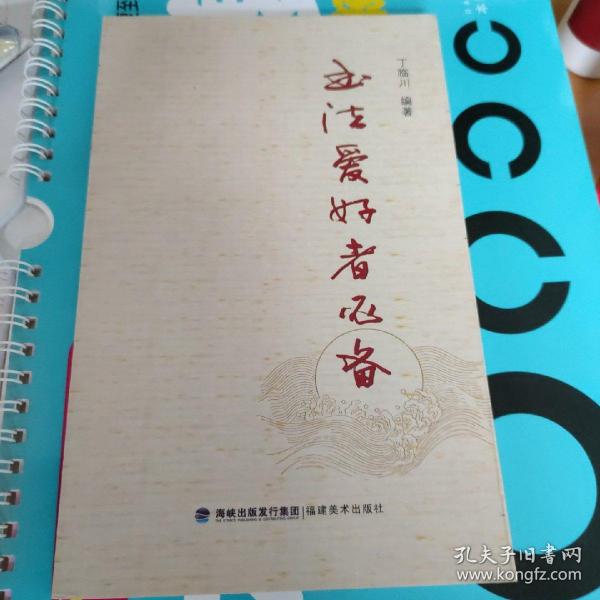 丁临川 编著
书法爱好者必备
海峡出版发行集团 | 福建美术出版社
THE STRAITS PUBLISHING & DISTRIBUTING GROUP
孔夫子旧书网
www.kongfz.com